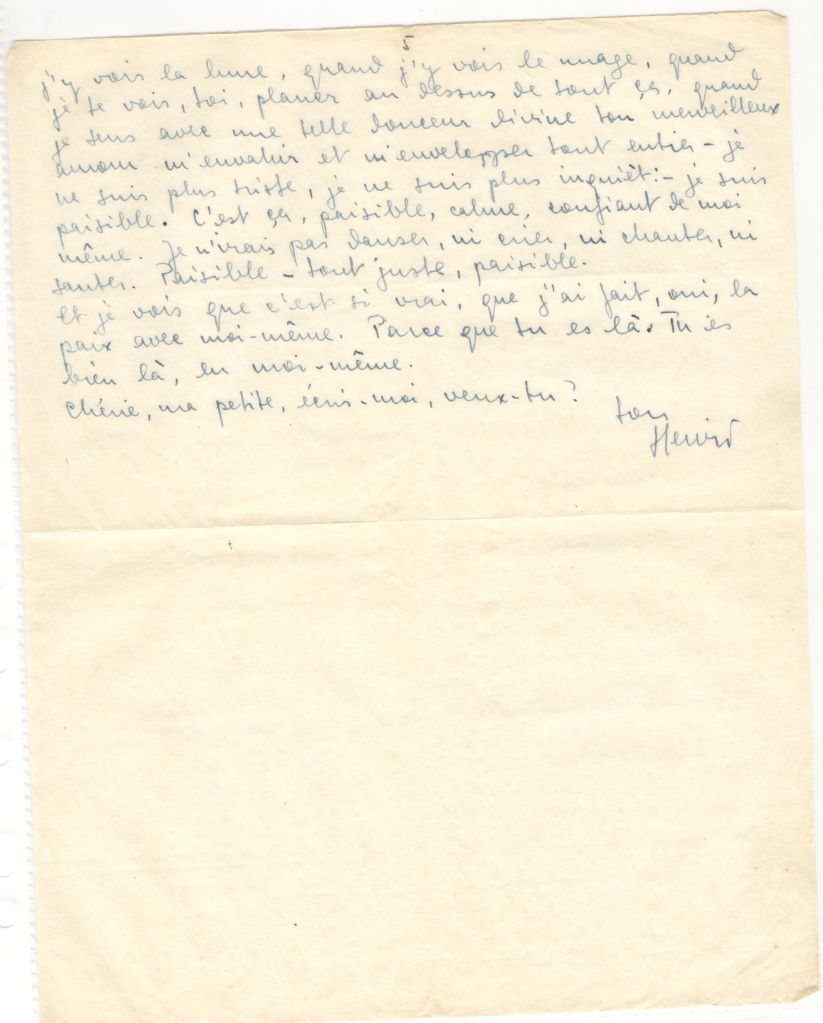 5
j'y vois la lune, quand j'y vois le nuage, quand
je te vois, toi, planer au dessus de tout ça, quand
je sens avec une telle douceur divine ton merveilleux
amour m'envahir et m'envelopper tout entier - je
ne suis plus triste, je ne suis plus inquièt - je suis
paisible. C'est ça, paisible, calme, confiant de moi
même. Je n'irais pas danser, ni crier, ni chanter, ni
sauter. Paisible - tout juste, paisible.
Et je vois que c'est si vrai, que j'ai fait, oui, la
paix avec moi-même. Parce que tu es là. Tu es
bien là, en moi-même.
Chérie, ma petite, écris-moi, veux-tu?
ton